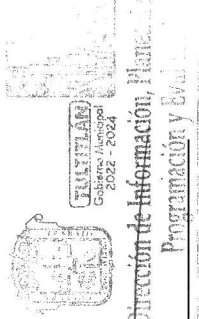 TULTITLÁN
Gobierno Municipal
2022 2024
Dirección de Información, Plane
Programación y Eval